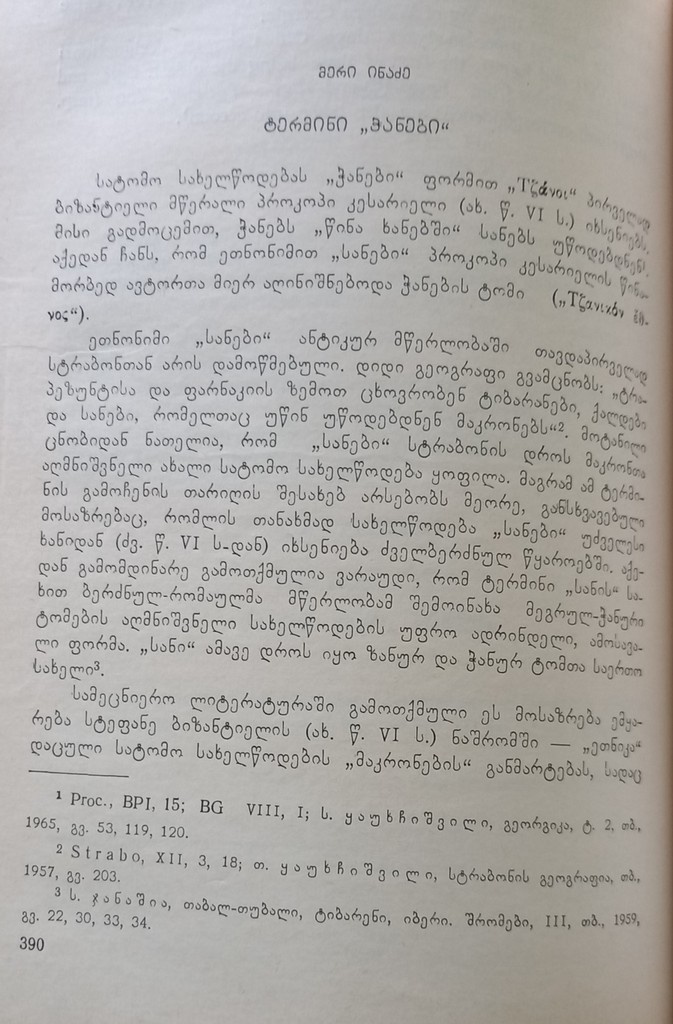 მერი ინაძე
ტერმინი „ჭანები“
სატომო სახელწოდებას „ჭანები“ ფორმით „Τζάνος“ პირველად
ბიზანტიელი მწერალი პროკოპი კესარიელი (ახ. წ. VI ს.) იხსენიებს.
მისი გადმოცემით, ჭანებს „წინა ხანებში“ სანებს უწოდებდნენ.
აქედან ჩანს, რომ ეთნონიმით „სანები“ პროკოპი კესარიელის წინა-
მორბედ ავტორთა მიერ აღინიშნებოდა ჭანების ტომი („Τζανικόν ἔθ-
νος“).
ეთნონიმი „სანები“ ანტიკურ მწერლობაში თავდაპირველად
სტრაბონთან არის დამოწმებული. დიდი გეოგრაფი გვამცნობს: „ტრა-
პეზუნტისა და ფარნაკიის ზემოთ ცხოვრობენ ტიბარანები, ქალდები
და სანები, რომელთაც უწინ უწოდებდნენ მაკრონებს“². მოტანილი
ცნობიდან ნათელია, რომ „სანები“ სტრაბონის დროს მაკრონთა
აღმნიშვნელი ახალი სატომო სახელწოდება ყოფილა. მაგრამ ამ ტერმი-
ნის გამოჩენის თარიღის შესახებ არსებობს მეორე, განსხვავებული
მოსაზრებაც, რომლის თანახმად სახელწოდება „სანები“ უძველესი
ხანიდან (ძვ. წ. VI ს-დან) იხსენიება ძველბერძნულ წყაროებში. აქე-
დან გამომდინარე გამოთქმულია ვარაუდი, რომ ტერმინი „სანის“ სა-
ხით ბერძნულ-რომაულმა მწერლობამ შემოინახა მეგრულ-ჭანური
ტომების აღმნიშვნელი სახელწოდების უფრო ადრინდელი, ამოსავა-
ლი ფორმა. „სანი“ ამავე დროს იყო ზანურ და ჭანურ ტომთა საერთო
სახელი³.
სამეცნიერო ლიტერატურაში გამოთქმული ეს მოსაზრება ემყა-
რება სტეფანე ბიზანტიელის (ახ. წ. VI ს.) ნაშრომში — „ეთნიკა“
დაცული სატომო სახელწოდების „მაკრონების“ განმარტებას, სადაც
¹ Proc., BPI, 15; BG VIII, I; ს. ყაუხჩიშვილი, გეორგიკა, ტ. 2, თბ.,
1965, გვ. 53, 119, 120.
² Strabo, XII, 3, 18; თ. ყაუხჩიშვილი, სტრაბონის გეოგრაფია, თბ.,
1957, გვ. 203.
³ ს. ჯანაშია, თაბალ-თუბალი, ტიბარენი, იბერი. შრომები, III, თბ., 1959,
გვ. 22, 30, 33, 34.
390